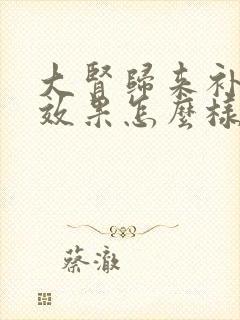 大腎歸来补
效果怎麼樣
蔡澈